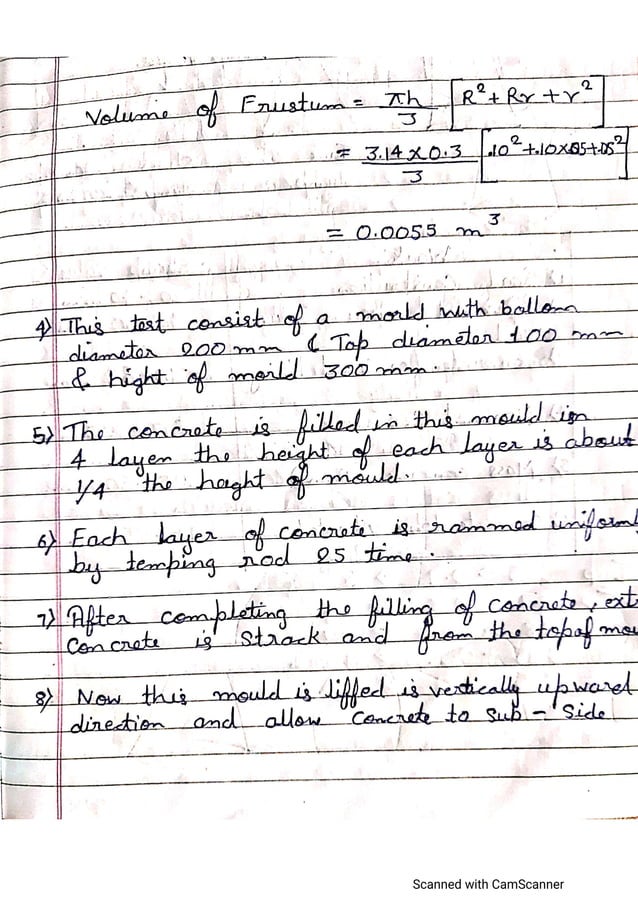 Volume of Frustum = πh/3 [R² + Rr + r²]
= 3.14 × 0.3 / 3 [.10² + .10 × .05 + .05²]
= 0.0055 m³
4) This test consist of a morld with bollom
diameter 200 mm & Top diameter 100 mm
& hight of morld 300 mm.
5) The concrete is filled in this mould isn
4 layen the height of each layer is about
1/4 the haght of mould.
6) Each layer of concrete is rammed uniforml
by temping rod 25 time.
7) After completing the filling of concrete, ext
concrete is strack and from the top of mou
8) Now this mould is liffed is vertically upward
direction and allow concrete to sub - side
Scanned with CamScanner